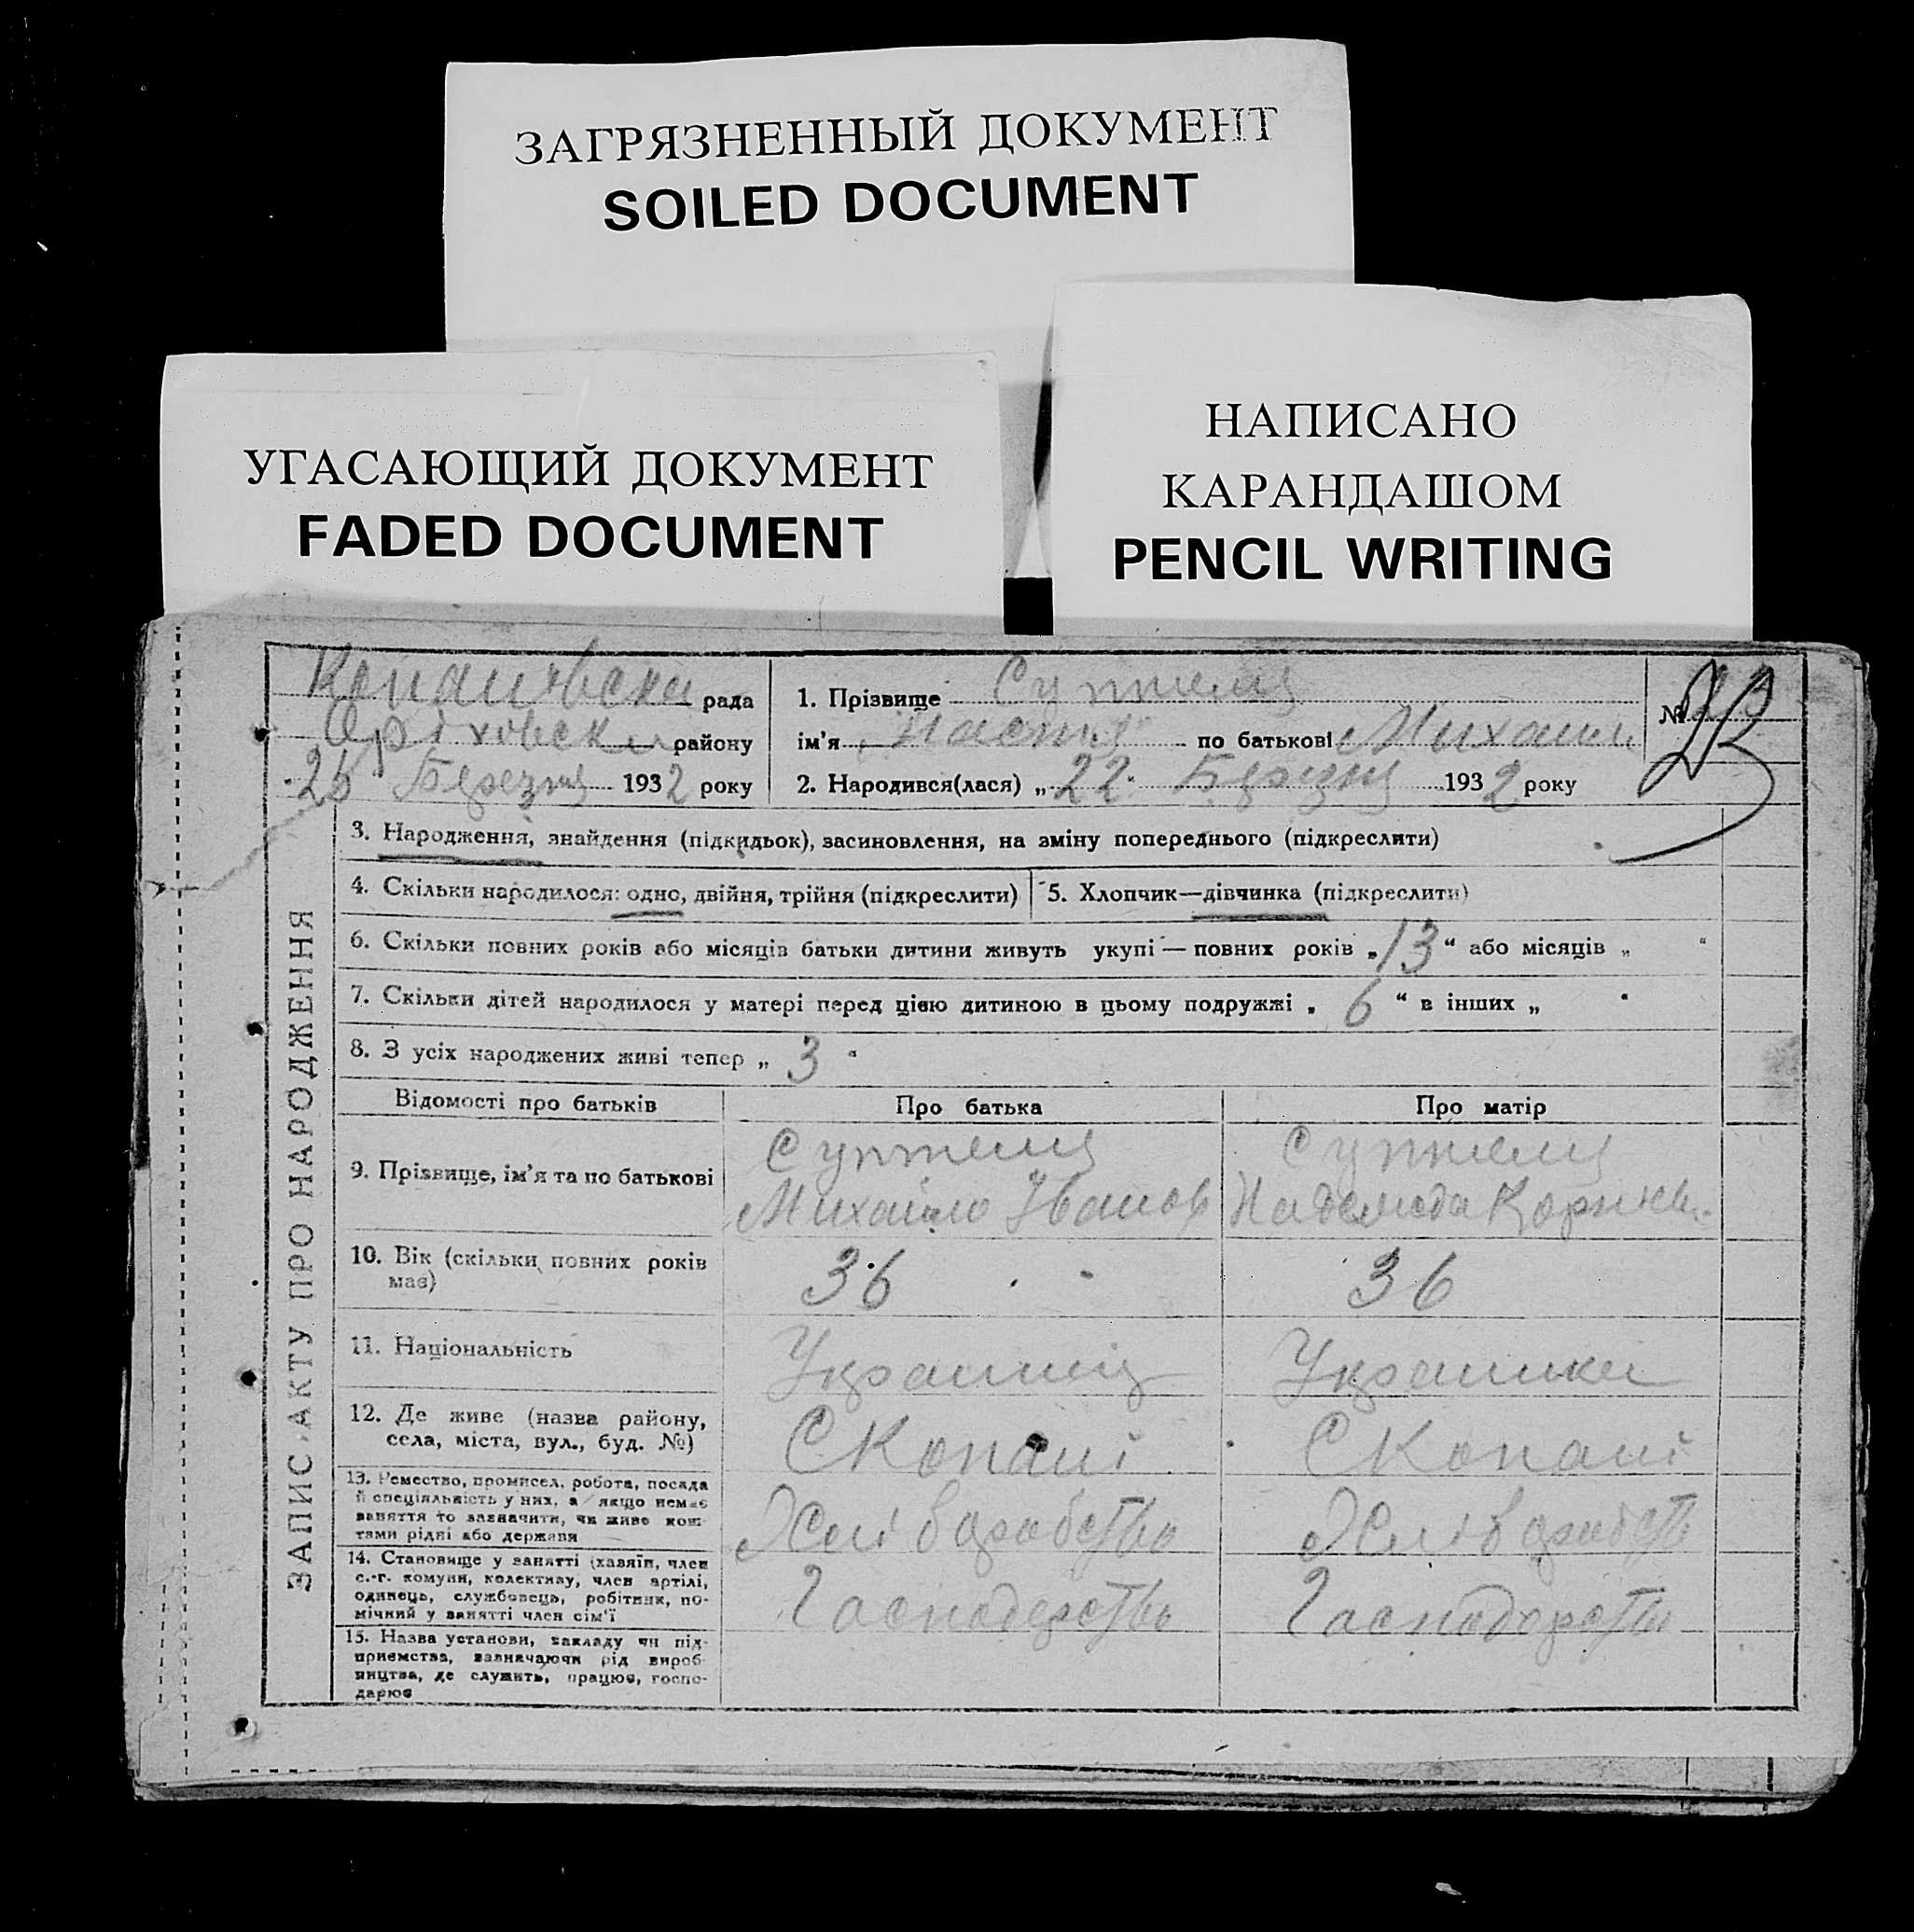 ЗАГРЯЗНЕННЫЙ ДОКУМЕНТ
SOILED DOCUMENT
УГАСАЮЩИЙ ДОКУМЕНТ
FADED DOCUMENT
НАПИСАНО
КАРАНДАШОМ
PENCIL WRITING
рада
району
Березня 1932 року
1. Прізвище
ім’я Настя по батькові Михайл
2. Народився(лася) „22 Березня 1932 року
№ 23
ЗАПИС АКТУ ПРО НАРОДЖЕННЯ
3. Народження, знайдення (підкидьок), засиновлення, на зміну попереднього (підкреслити)
4. Скільки народилося: одно, двійня, трійня (підкреслити)
5. Хлопчик—дівчинка (підкреслити)
6. Скільки повних років або місяців батьки дитини живуть укупі — повних років „13“ або місяців „ “
7. Скільки дітей народилося у матері перед цією дитиною в цьому подружжі „ 6 “ в інших „ “
8. З усіх народжених живі тепер „ 3 “
Відомості про батьків
Про батька
Про матір
9. Прізвище, ім’я та по батькові
Михайло Іванов
Надежда Корнив
10. Вік (скільки повних років
має)
36
36
11. Національність
Украинец
Украинка
12. Де живе (назва району,
села, міста, вул., буд. №)
С Копані
С Копані
13. Ремество, промисел, робота, посада
й спеціяльність у них, а якщо немає
заняття то зазначити, чи живе кош-
тами рідні або держави
Хліборобство
Хліборобств
14. Становище у занятті (хазяїн, член
с.-г. комуни, колективу, член артілі,
одинець, службовець, робітник, по-
мічний у занятті член сім’ї
Господарство
Господарство
15. Назва установи, закладу чи під-
приємства, зазначаючи рід вироб-
ництва, де служить, працює, госпо-
дарює